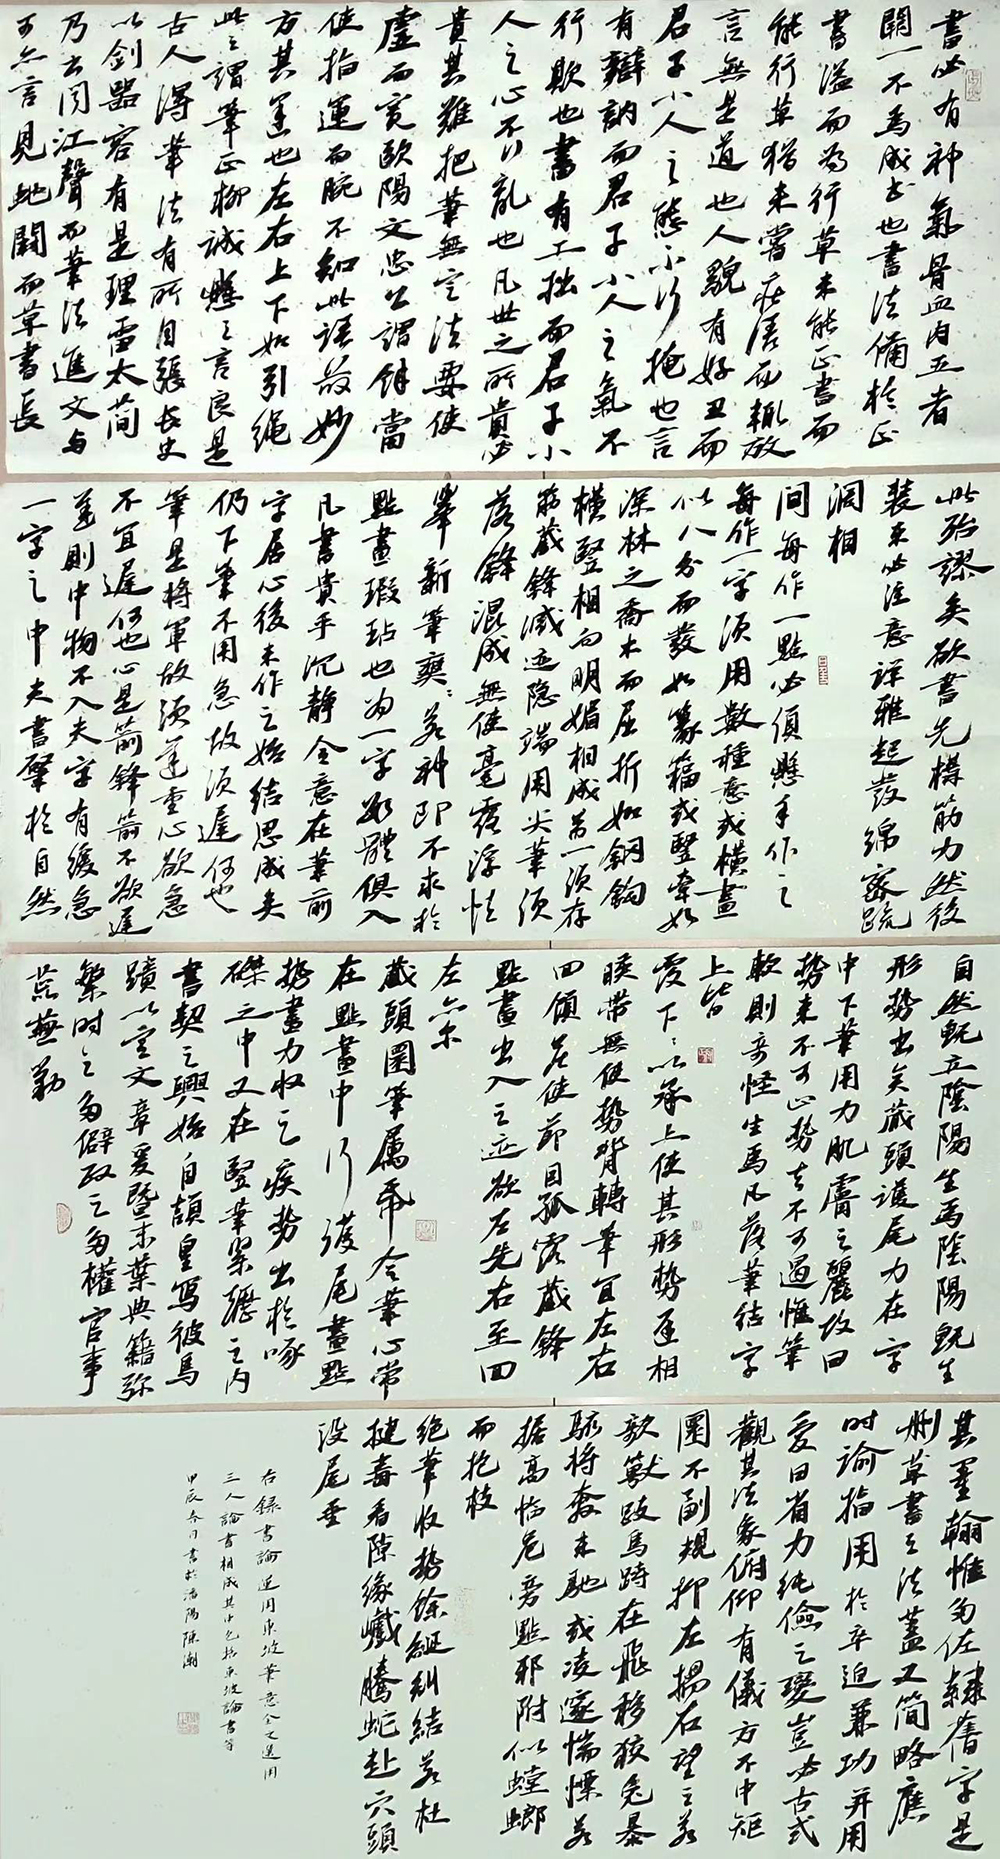 書必有神氣骨血肉五者
闕一不為成書也書法備於正
書溢而為行草未能正書而
能行草猶未嘗莊語而輒放
言無是道也人貌有好丑而
君子小人之態不可掩也言
有辯訥而君子小人之氣不
可欺也書有工拙而君子小
人之心不可亂也凡世之所貴必
貴其難把筆無定法要使
虛而寬歐陽文忠公謂余當
使指運而腕不知此語最妙
方其運也左右上下如引繩
此之謂筆正柳誠懸之言良是
古人得筆法有所自張長史
以劍器容有是理雷太簡
乃云聞江聲而筆法進文与
可亦言見蛇鬬而草書長
此殆謬矣欲書先構筋力然後
裝束必注意詳雅起發綿密疏
濶相
間每作一點必須懸手作之
每作一字須用數種意或橫畫
似八分而發如篆籀或豎牽如
深林之喬木而屈折如鋼鉤
橫豎相向明媚相成第一須存
筋藏鋒滅迹隐端用尖筆須
落鋒混成無使毫露浮怯
舉新筆爽爽若神即不求於
點畫瑕玷也為一字數體俱入
凡書貴乎沉靜令意在筆前
字居心後未作之始結思成矣
仍下筆不用急故須遲何也
筆是将軍故須遲重心欲急
不宜遲何也心是箭鋒箭不欲遲
遲則中物不入夫字有緩急
一字之中夫書肇於自然
自然既立陰陽生焉陰陽既生
形勢出矣藏頭護尾力在字
中下筆用力肌膚之麗故曰
勢来不可止勢去不可遏惟筆
軟則奇怪生焉凡落筆結字
上皆
覆下下以承上使其形勢逓相
暎帶無使勢背轉筆宜左右
回傾無使節目孤露藏鋒
點畫出入之迹欲左先右至回
左亦尔
藏頭圈筆屬帋令筆心常
在點畫中行護尾畫點
勢盡力收之疾勢出於啄
磔之中又在竪筆緊趯之内
書契之興始自頡皇寫彼鳥
蹟以定文章爰暨末葉典籍弥
繁時之多僻政之多權官事
荒蕪勦
其墨翰惟多佐隸舊字是
刪草書之法蓋又简略應
时諭指用於卒迫兼功并用
爱日省力純儉之變豈必古式
觀其法象俯仰有儀方不中矩
圓不副規抑左揚右望之若
欹獸跂鳥跱志在飛移狡兔暴
駭将奔未馳或凌邃惴慄若
据高临危旁點邪附似螳螂
而抱枝
绝筆收勢餘綖糾結若杜
揵毒看隙缘巇騰蛇赴穴頭
没尾垂
右錄書論運用東坡筆意全文選用
三人論書相成其中包括東坡論書等
甲辰春月書於瀋陽陳潮